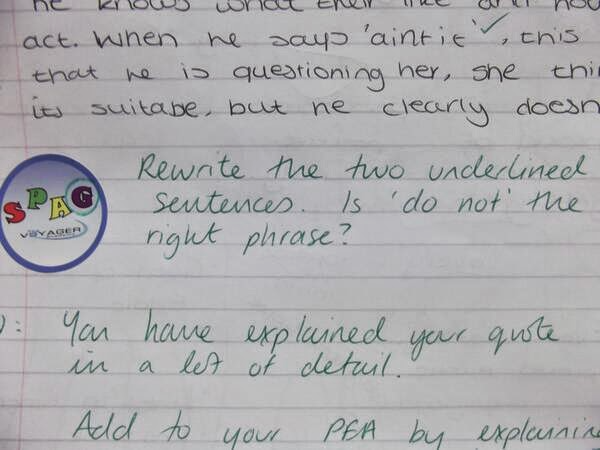 he knows what their like and how
act. When he says 'aint it', this
that he is questioning her, she thi
its suitabe, but he clearly doesn
Rewrite the two underlined
SPAG
sentences. Is 'do not' the
VOYAGER
right phrase?
: You have explained your quote
in a lot of detail.
Add to your PEA by explaining